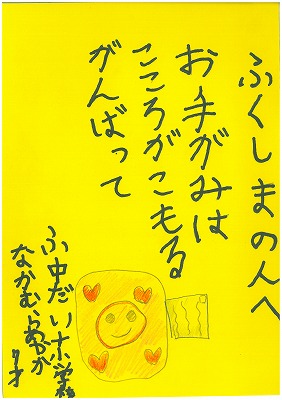 ふくしまの人へ
お手がみは
こころがこもる
がんばって
ふ中だい小学校
なかむら
才